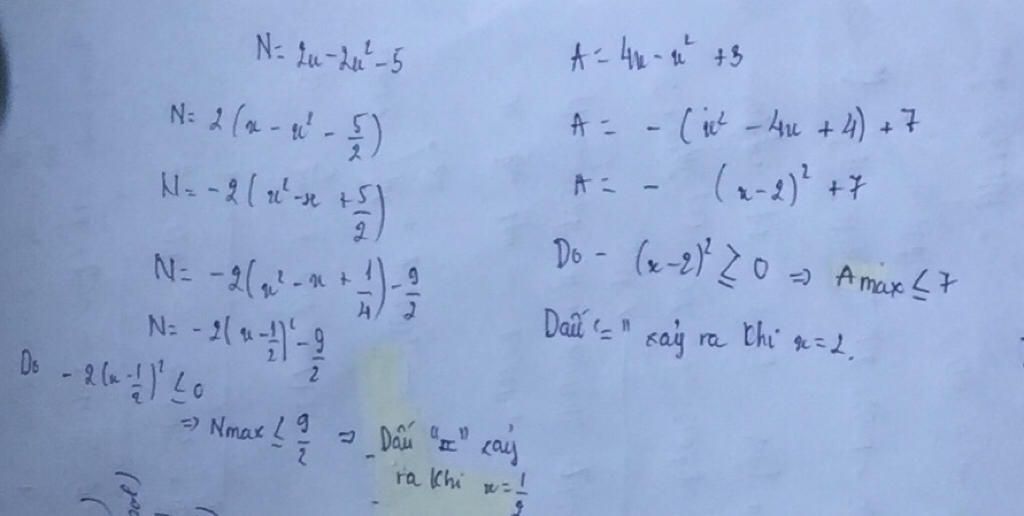 N = 2x - 2x² - 5
N = 2(x - x² - 5/2)
N = -2(x² - x + 5/2)
N = -2(x² - x + 1/4) - 9/2
N = -2(x - 1/2)² - 9/2
Do -2(x - 1/2)² ≤ 0
⇒ Nmax ≤ 9/2 ⇒ Dấu "=" xảy
ra khi x = 1/2
A = 4x - x² + 3
A = - (x² - 4x + 4) + 7
A = - (x - 2)² + 7
Do - (x - 2)² ≥ 0 ⇒ Amax ≤ 7
Dấu "=" xảy ra khi x = 2.